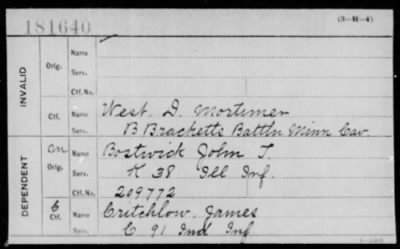 181640
(3-H-4)
INVALID
Orig.
Name
Serv.
Ctf. No.
Ctf.
Name West, D. Mortimer
Serv. B Bracketts Battln Minn Cav.
DEPENDENT
Orig.
Name Bostwick John T.
Serv. K 38 Ill Inf.
Ctf. No. 209772
Ctf.
Name Critchlow, James
Serv. C 91 Ind Inf